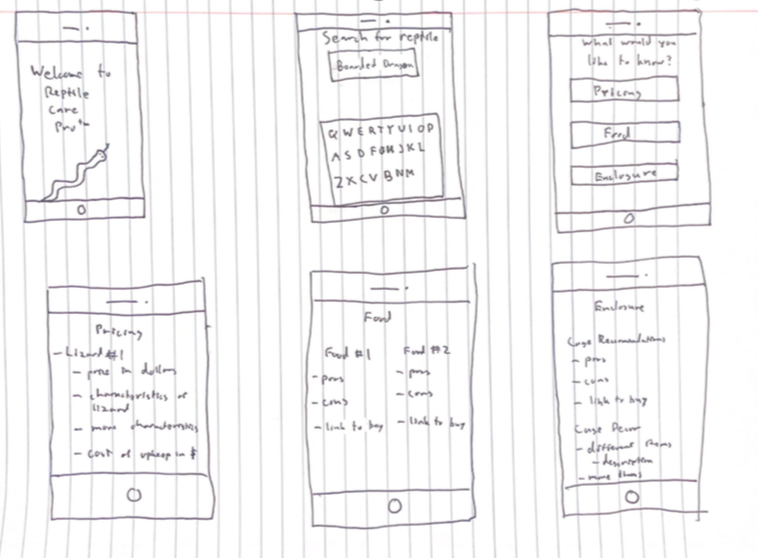 Welcome to
Reptile
Care
Search for reptile
Bearded Dragon
QWERTYUIOP
ASDFGHJKL
ZXCVBNM
What would you
like to know?
Pricing
Food
Enclosure
Pricing
- Lizard #1
- price in dollars
- characteristics of
lizard
- more characteristics
- cost of upkeep in $
Food
Food #1
- pros
- cons
- link to buy
Food #2
- pros
- cons
- link to buy
Enclosure
Cage
- pros
- cons
- link to buy
Cage Decor
- different items
- description
- more items